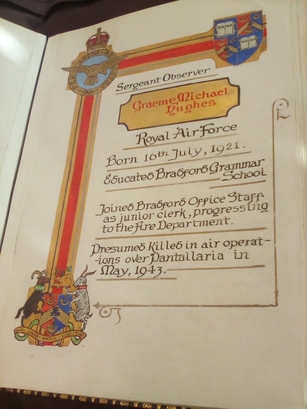 Sergeant Observer
Graeme Michael
Hughes
Royal Air Force
Born 16th July, 1921.
Educated Bradford Grammar
School
Joined Bradford Office Staff
as junior clerk, progressing
to the Fire Department.
Presumed killed in air operat-
-ions over Pantallaria in
May, 1943.